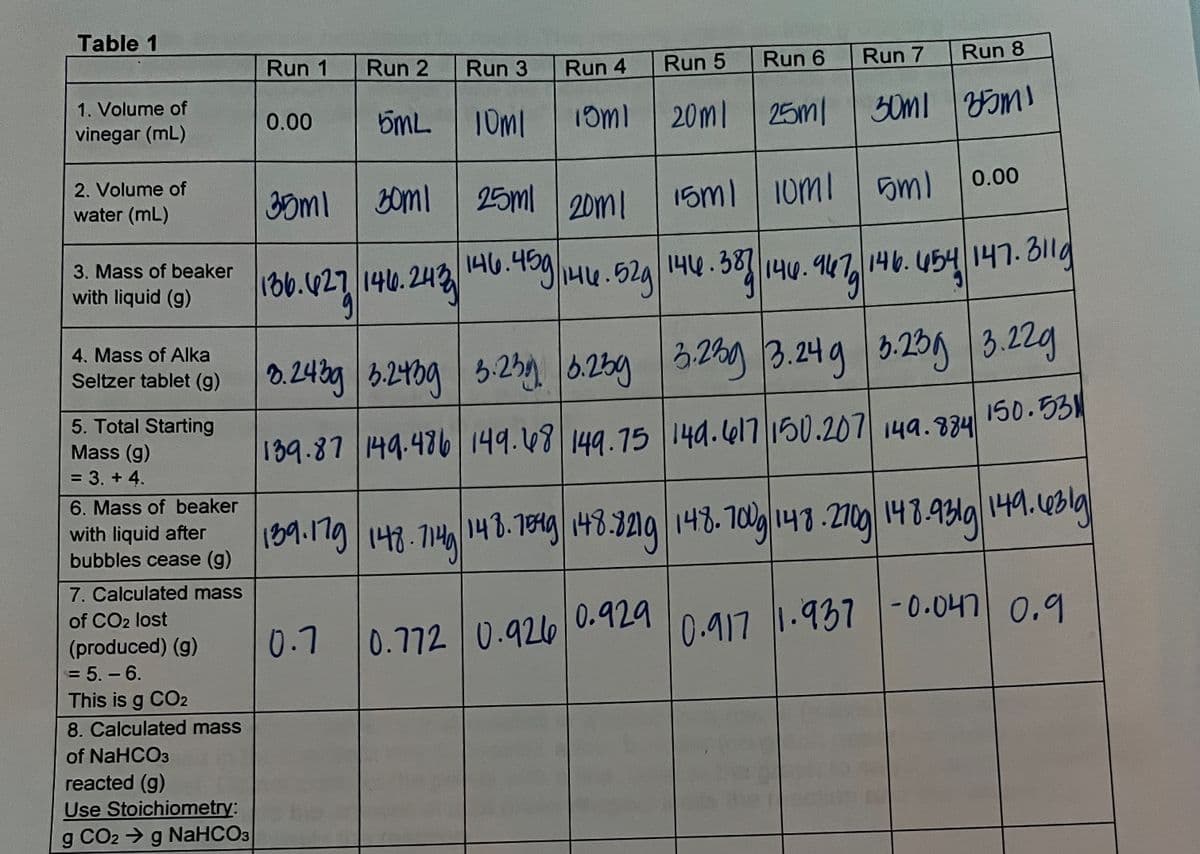 Table 1
Run 1 Run 2 Run 3 Run 4 Run 5 Run 6 Run 7 Run 8
1. Volume of
vinegar (mL)
0.00 5mL 10ml 15ml 20ml 25ml 30ml 35ml
2. Volume of
water (mL)
35ml 30ml 25ml 20ml 15ml 10ml 5ml 0.00
3. Mass of beaker
with liquid (g)
136.627g 146.243g 146.45g 146.52g 146.387g 146.967g 146.654g 147.311g
4. Mass of Alka
Seltzer tablet (g)
3.243g 3.243g 3.23g 3.23g 3.23g 3.24g 3.23g 3.22g
5. Total Starting
Mass (g)
= 3. + 4.
139.87 149.486 149.68 149.75 149.617 150.207 149.884 150.531
6. Mass of beaker
with liquid after
bubbles cease (g)
139.17g 148.714g 148.754g 148.821g 148.700g 148.270g 148.931g 149.631g
7. Calculated mass
of CO2 lost
(produced) (g)
= 5. – 6.
This is g CO2
0.7 0.772 0.926 0.929 0.917 1.937 -0.047 0.9
8. Calculated mass
of NaHCO3
reacted (g)
Use Stoichiometry:
g CO2 → g NaHCO3